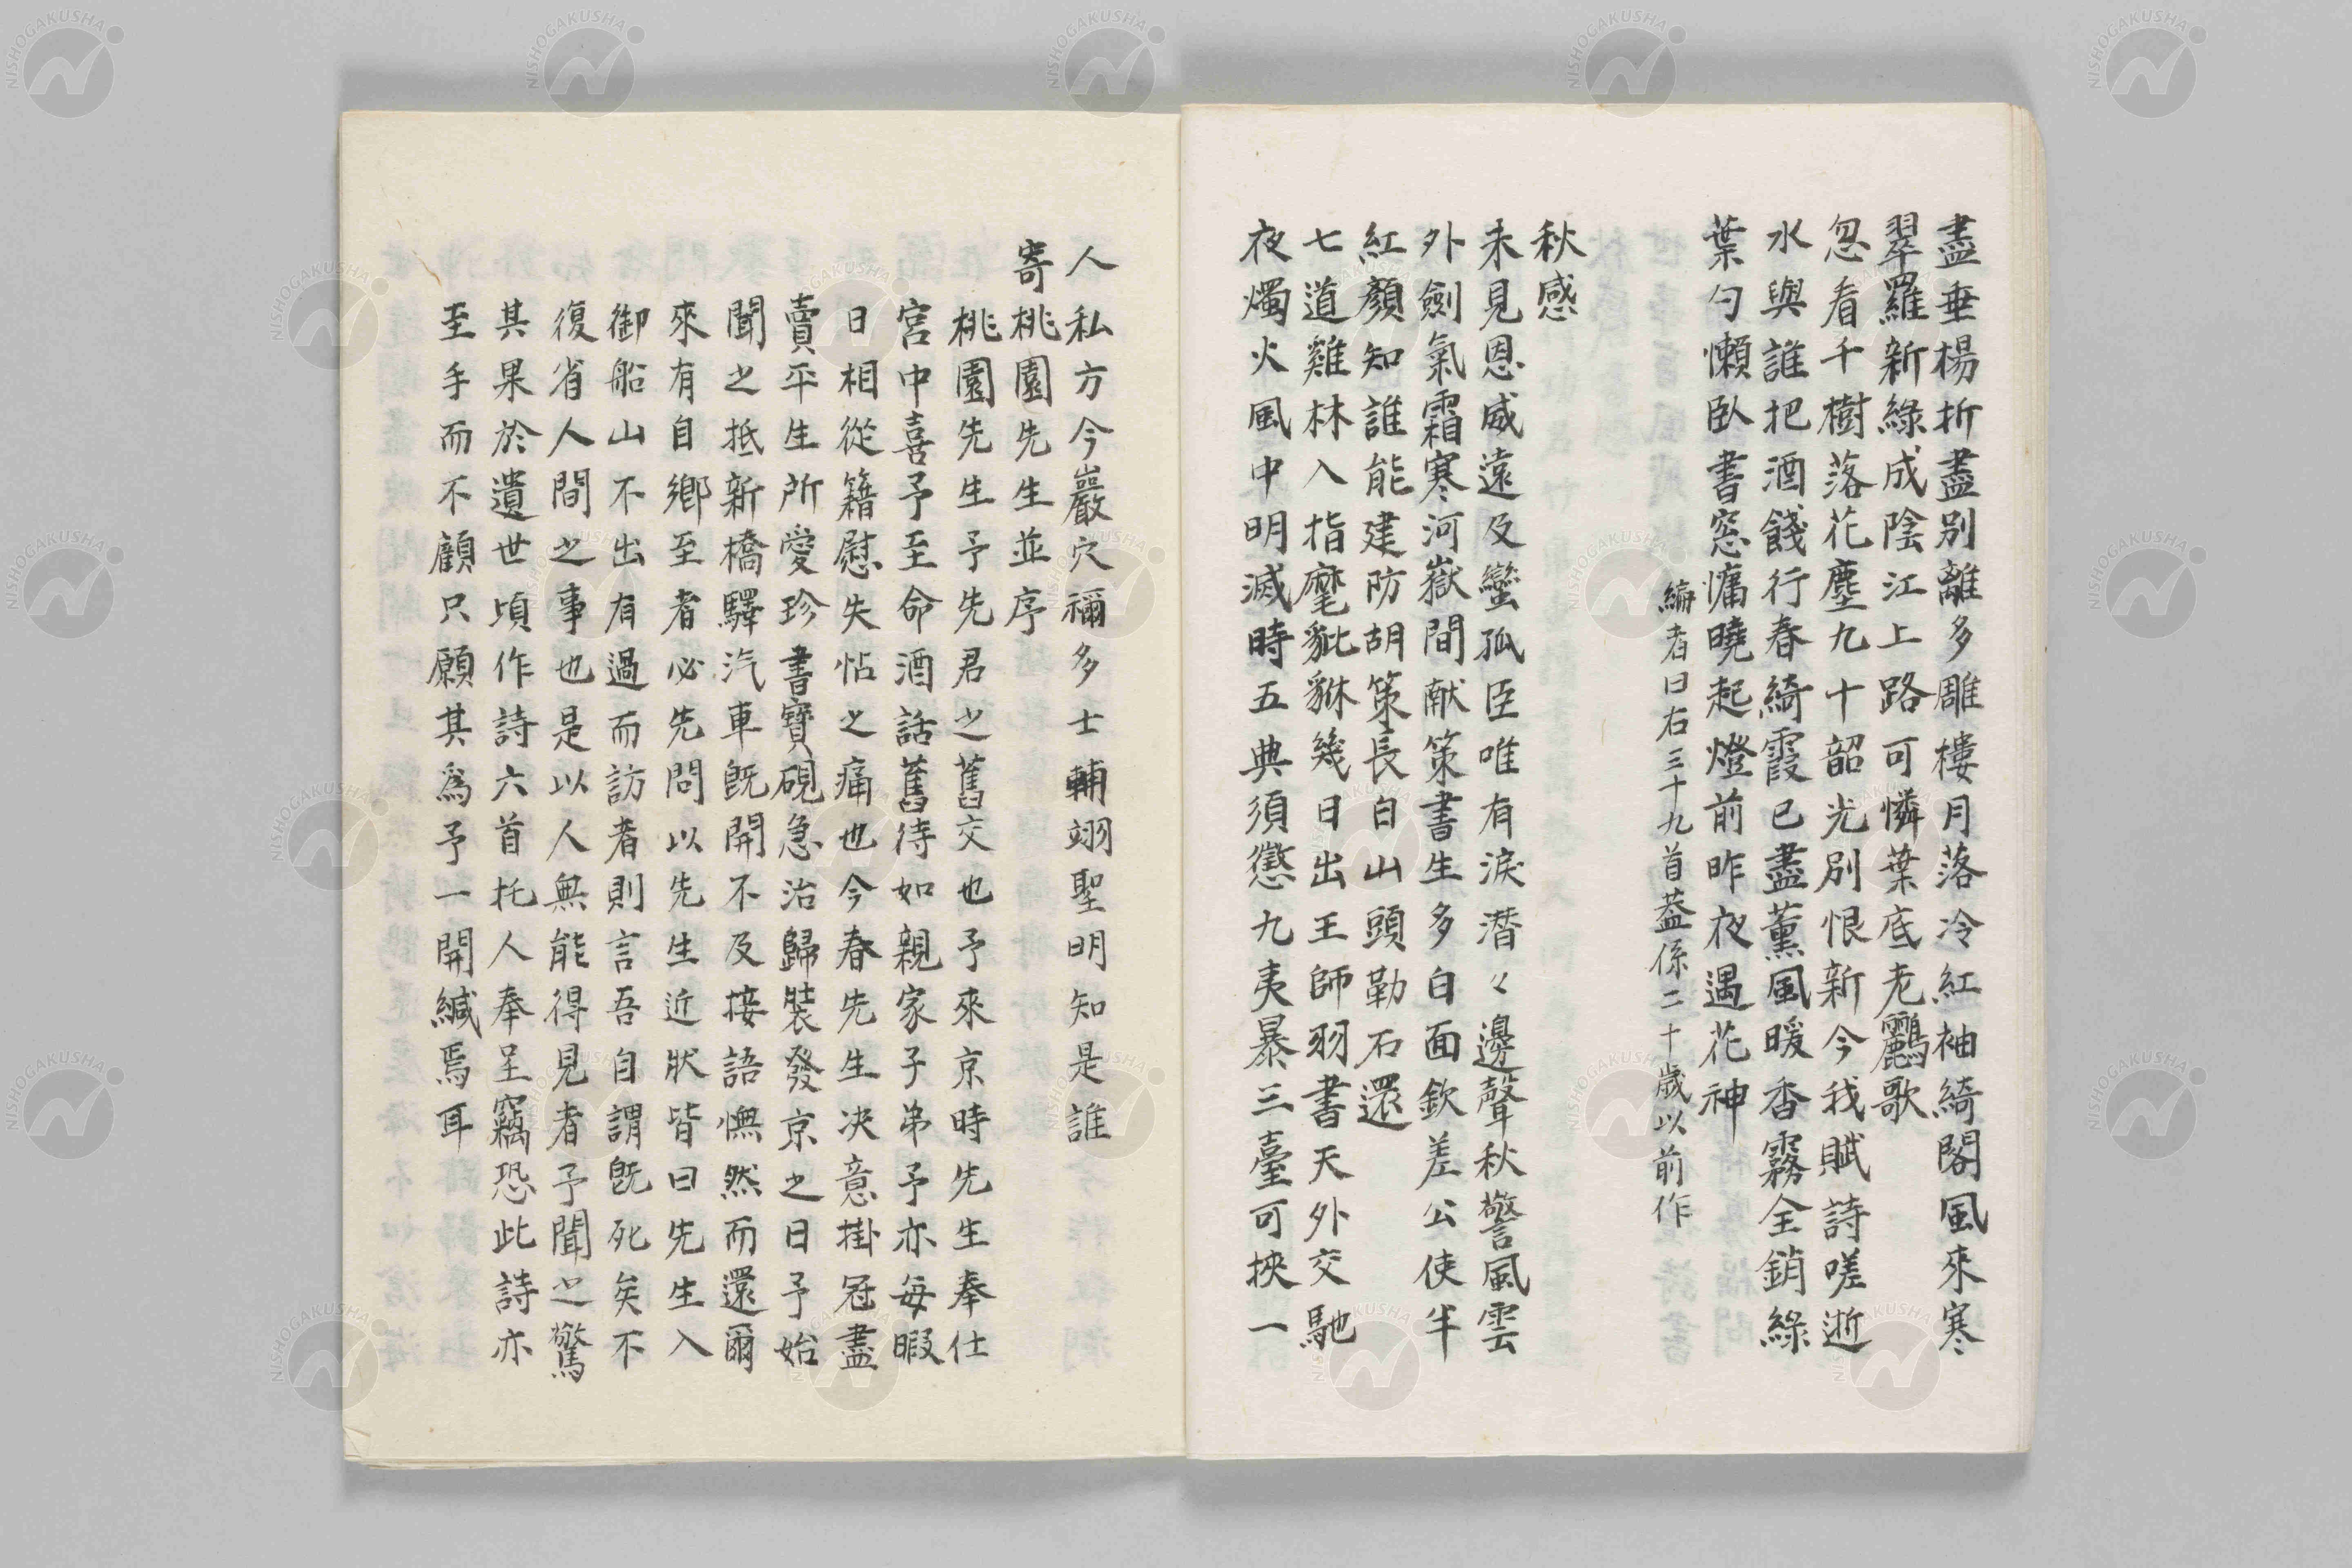 盡垂楊折盡別離多雕樓月落冷紅袖綺閣風來寒
翠羅新綠成陰江上路可憐葉底老鸝歌
忽看千樹落花塵九十韶光別恨新今我賦詩嗟逝
水與誰把酒餞行春綺霞已盡薰風暖香霧全銷綠
葉勻懶臥書窓慵曉起燈前昨夜遇花神
編者曰右三十九首蓋係二十歲以前作
秋感
未見恩威遠及蠻孤臣唯有淚潜々邊聲秋警風雲
外劍氣霜寒河嶽間献策書生多白面欽差公使半
紅顏知誰能建防胡策長白山頭勒石還
七道雞林入指麾貔貅幾日出王師羽書天外交馳
夜燭火風中明滅時五典須懲九夷暴三臺可挾一
人私方今巖穴禰多士輔翊聖明知是誰
寄桃園先生並序
桃園先生予先君之舊交也予來京時先生奉仕
宮中喜予至命酒話舊待如親家子弟予亦每暇
日相從籍慰失怙之痛也今春先生决意掛冠盡
賣平生所愛珍書寶硯急治歸裝發京之日予始
聞之抵新橋驛汽車旣開不及接語憮然而還爾
來有自鄉至者必先問以先生近狀皆曰先生入
御船山不出有過而訪者則言吾自謂旣死矣不
復省人間之事也是以人無能得見者予聞之驚
其果於遺世頃作詩六首托人奉呈竊恐此詩亦
至手而不顧只願其爲予一開緘焉耳